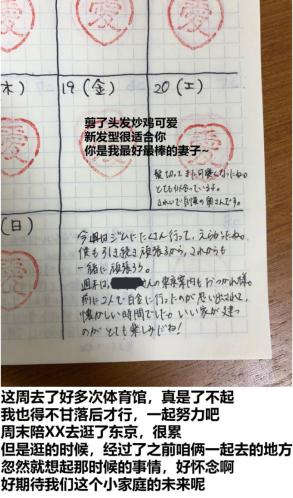 愛
愛
愛
木)
19(金)
20(土)
愛
剪了头发炒鸡可爱
新发型很适合你
你是我最好最棒的妻子~
愛
髪切ってまた可愛くなったね。
とても似合っています。
きれいで自慢の奥さんです。
(日)
今週はジムにたくさん行って、えらかったね。
僕も引き続き頑張るから、これからも
一緒に頑張ろう。
週末は、
さんの東京案内もおつかれ様。
前に2人で
に行ったのが思い出されて、
懐かしい時間でした。いい家が建つ
のがとても楽しみだね!
这周去了好多次体育馆，真是了不起
我也得不甘落后才行，一起努力吧
周末陪XX去逛了东京，很累
但是逛的时候，经过了之前咱俩一起去的地方
忽然就想起那时候的事情，好怀念啊
好期待我们这个小家庭的未来呢